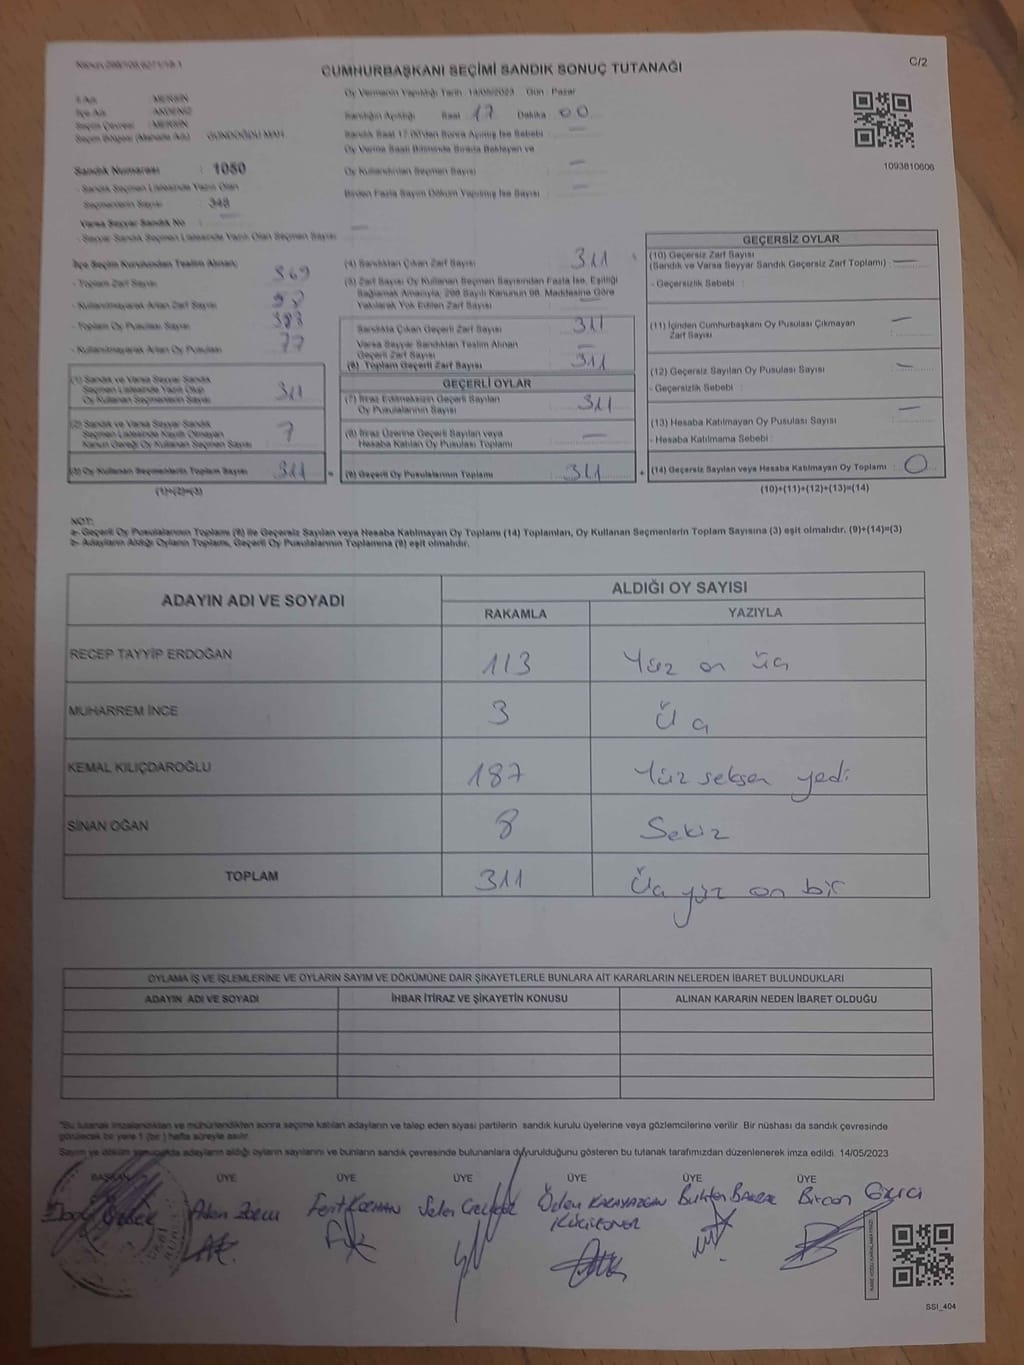 C/2
CUMHURBAŞKANI SEÇİMİ SANDIK SONUÇ TUTANAĞI
Oy Vermenin Yapıldığı Tarih : 14/05/2023 Gün : Pazar
İl Adı : MERSİN
İlçe Adı : AKDENİZ
Seçim Çevresi : MERSİN
Seçim Bölgesi (Mahalle Adı) : GÜNDOĞDU MAH.
Sandığın Açıldığı Saat : 17 Dakika : 00
Sandık Saat 17.00'den Sonra Açılmış İse Sebebi : —
Oy Verme Saati Bitiminde Sırada Bekleyen ve
Oy Kullandırılan Seçmen Sayısı : —
Birden Fazla Sayım Döküm Yapılmış İse Sayısı : —
1093810606
Sandık Numarası : 1050
- Sandık Seçmen Listesinde Yazılı Olan
Seçmenlerin Sayısı : 348
Varsa Seyyar Sandık No : —
- Seyyar Sandık Seçmen Listesinde Yazılı Olan Seçmen Sayısı : —
İlçe Seçim Kurulundan Teslim Alınan;
- Toplam Zarf Sayısı : 369
- Kullanılmayarak Artan Zarf Sayısı :
- Toplam Oy Pusulası Sayısı : 383
- Kullanılmayarak Artan Oy Pusulası : 77
(1) Sandık ve Varsa Seyyar Sandık
Seçmen Listesinde Yazılı Olup
Oy Kullanan Seçmenlerin Sayısı : 311
(2) Sandık ve Varsa Seyyar Sandık
Seçmen Listesinde Kayıtlı Olmayan
Kanun Gereği Oy Kullanan Seçmen Sayısı : 7
(3) Oy Kullanan Seçmenlerin Toplam Sayısı : 311
(1)+(2)=(3)
(4) Sandıktan Çıkan Zarf Sayısı : 311
(5) Zarf Sayısı Oy Kullanan Seçmen Sayısından Fazla İse, Eşitliği
Sağlamak Amacıyla, 298 Sayılı Kanunun 98. Maddesine Göre
Yakılarak Yok Edilen Zarf Sayısı : —
Sandıkta Çıkan Geçerli Zarf Sayısı : 311
Varsa Seyyar Sandıktan Teslim Alınan
Geçerli Zarf Sayısı : —
(6) Toplam Geçerli Zarf Sayısı : 311
GEÇERLİ OYLAR
(7) İtiraz Edilmeksizin Geçerli Sayılan
Oy Pusulalarının Sayısı : 311
(8) İtiraz Üzerine Geçerli Sayılan veya
Hesaba Katılan Oy Pusulası Toplamı : —
(9) Geçerli Oy Pusulalarının Toplamı : 311
GEÇERSİZ OYLAR
(10) Geçersiz Zarf Sayısı
(Sandık ve Varsa Seyyar Sandık Geçersiz Zarf Toplamı) : —
- Geçersizlik Sebebi :
(11) İçinden Cumhurbaşkanı Oy Pusulası Çıkmayan
Zarf Sayısı : —
(12) Geçersiz Sayılan Oy Pusulası Sayısı : —
- Geçersizlik Sebebi :
(13) Hesaba Katılmayan Oy Pusulası Sayısı : —
- Hesaba Katılmama Sebebi :
(14) Geçersiz Sayılan veya Hesaba Katılmayan Oy Toplamı : 0
(10)+(11)+(12)+(13)=(14)
NOT:
a- Geçerli Oy Pusulalarının Toplamı (9) ile Geçersiz Sayılan veya Hesaba Katılmayan Oy Toplamı (14) Toplamları, Oy Kullanan Seçmenlerin Toplam Sayısına (3) eşit olmalıdır. (9)+(14)=(3)
b- Adayların Aldığı Oyların Toplamı, Geçerli Oy Pusulalarının Toplamına (9) eşit olmalıdır.
ADAYIN ADI VE SOYADI
ALDIĞI OY SAYISI
RAKAMLA YAZIYLA
RECEP TAYYİP ERDOĞAN 113 Yüz on üç
MUHARREM İNCE 3 Üç
KEMAL KILIÇDAROĞLU 187 Yüz seksen yedi
SİNAN OĞAN 8 Sekiz
TOPLAM 311 Üç yüz on bir
OYLAMA İŞ VE İŞLEMLERİNE VE OYLARIN SAYIM VE DÖKÜMÜNE DAİR ŞİKAYETLERLE BUNLARA AİT KARARLARIN NELERDEN İBARET BULUNDUKLARI
ADAYIN ADI VE SOYADI İHBAR İTİRAZ VE ŞİKAYETİN KONUSU ALINAN KARARIN NEDEN İBARET OLDUĞU
*Bu tutanak imzalandıktan ve mühürlendikten sonra seçime katılan adayların ve talep eden siyasi partilerin sandık kurulu üyelerine veya gözlemcilerine verilir. Bir nüshası da sandık çevresinde
görülecek bir yere 1 (bir ) hafta süreyle asılır.
Sayım ve döküm sonucunda adayların aldığı oyların sayılarını ve bunların sandık çevresinde bulunanlara duyurulduğunu gösteren bu tutanak tarafımızdan düzenlenerek imza edildi. 14/05/2023
BAŞKAN ÜYE ÜYE ÜYE ÜYE ÜYE ÜYE
Ferit KORHAN
SSI_404